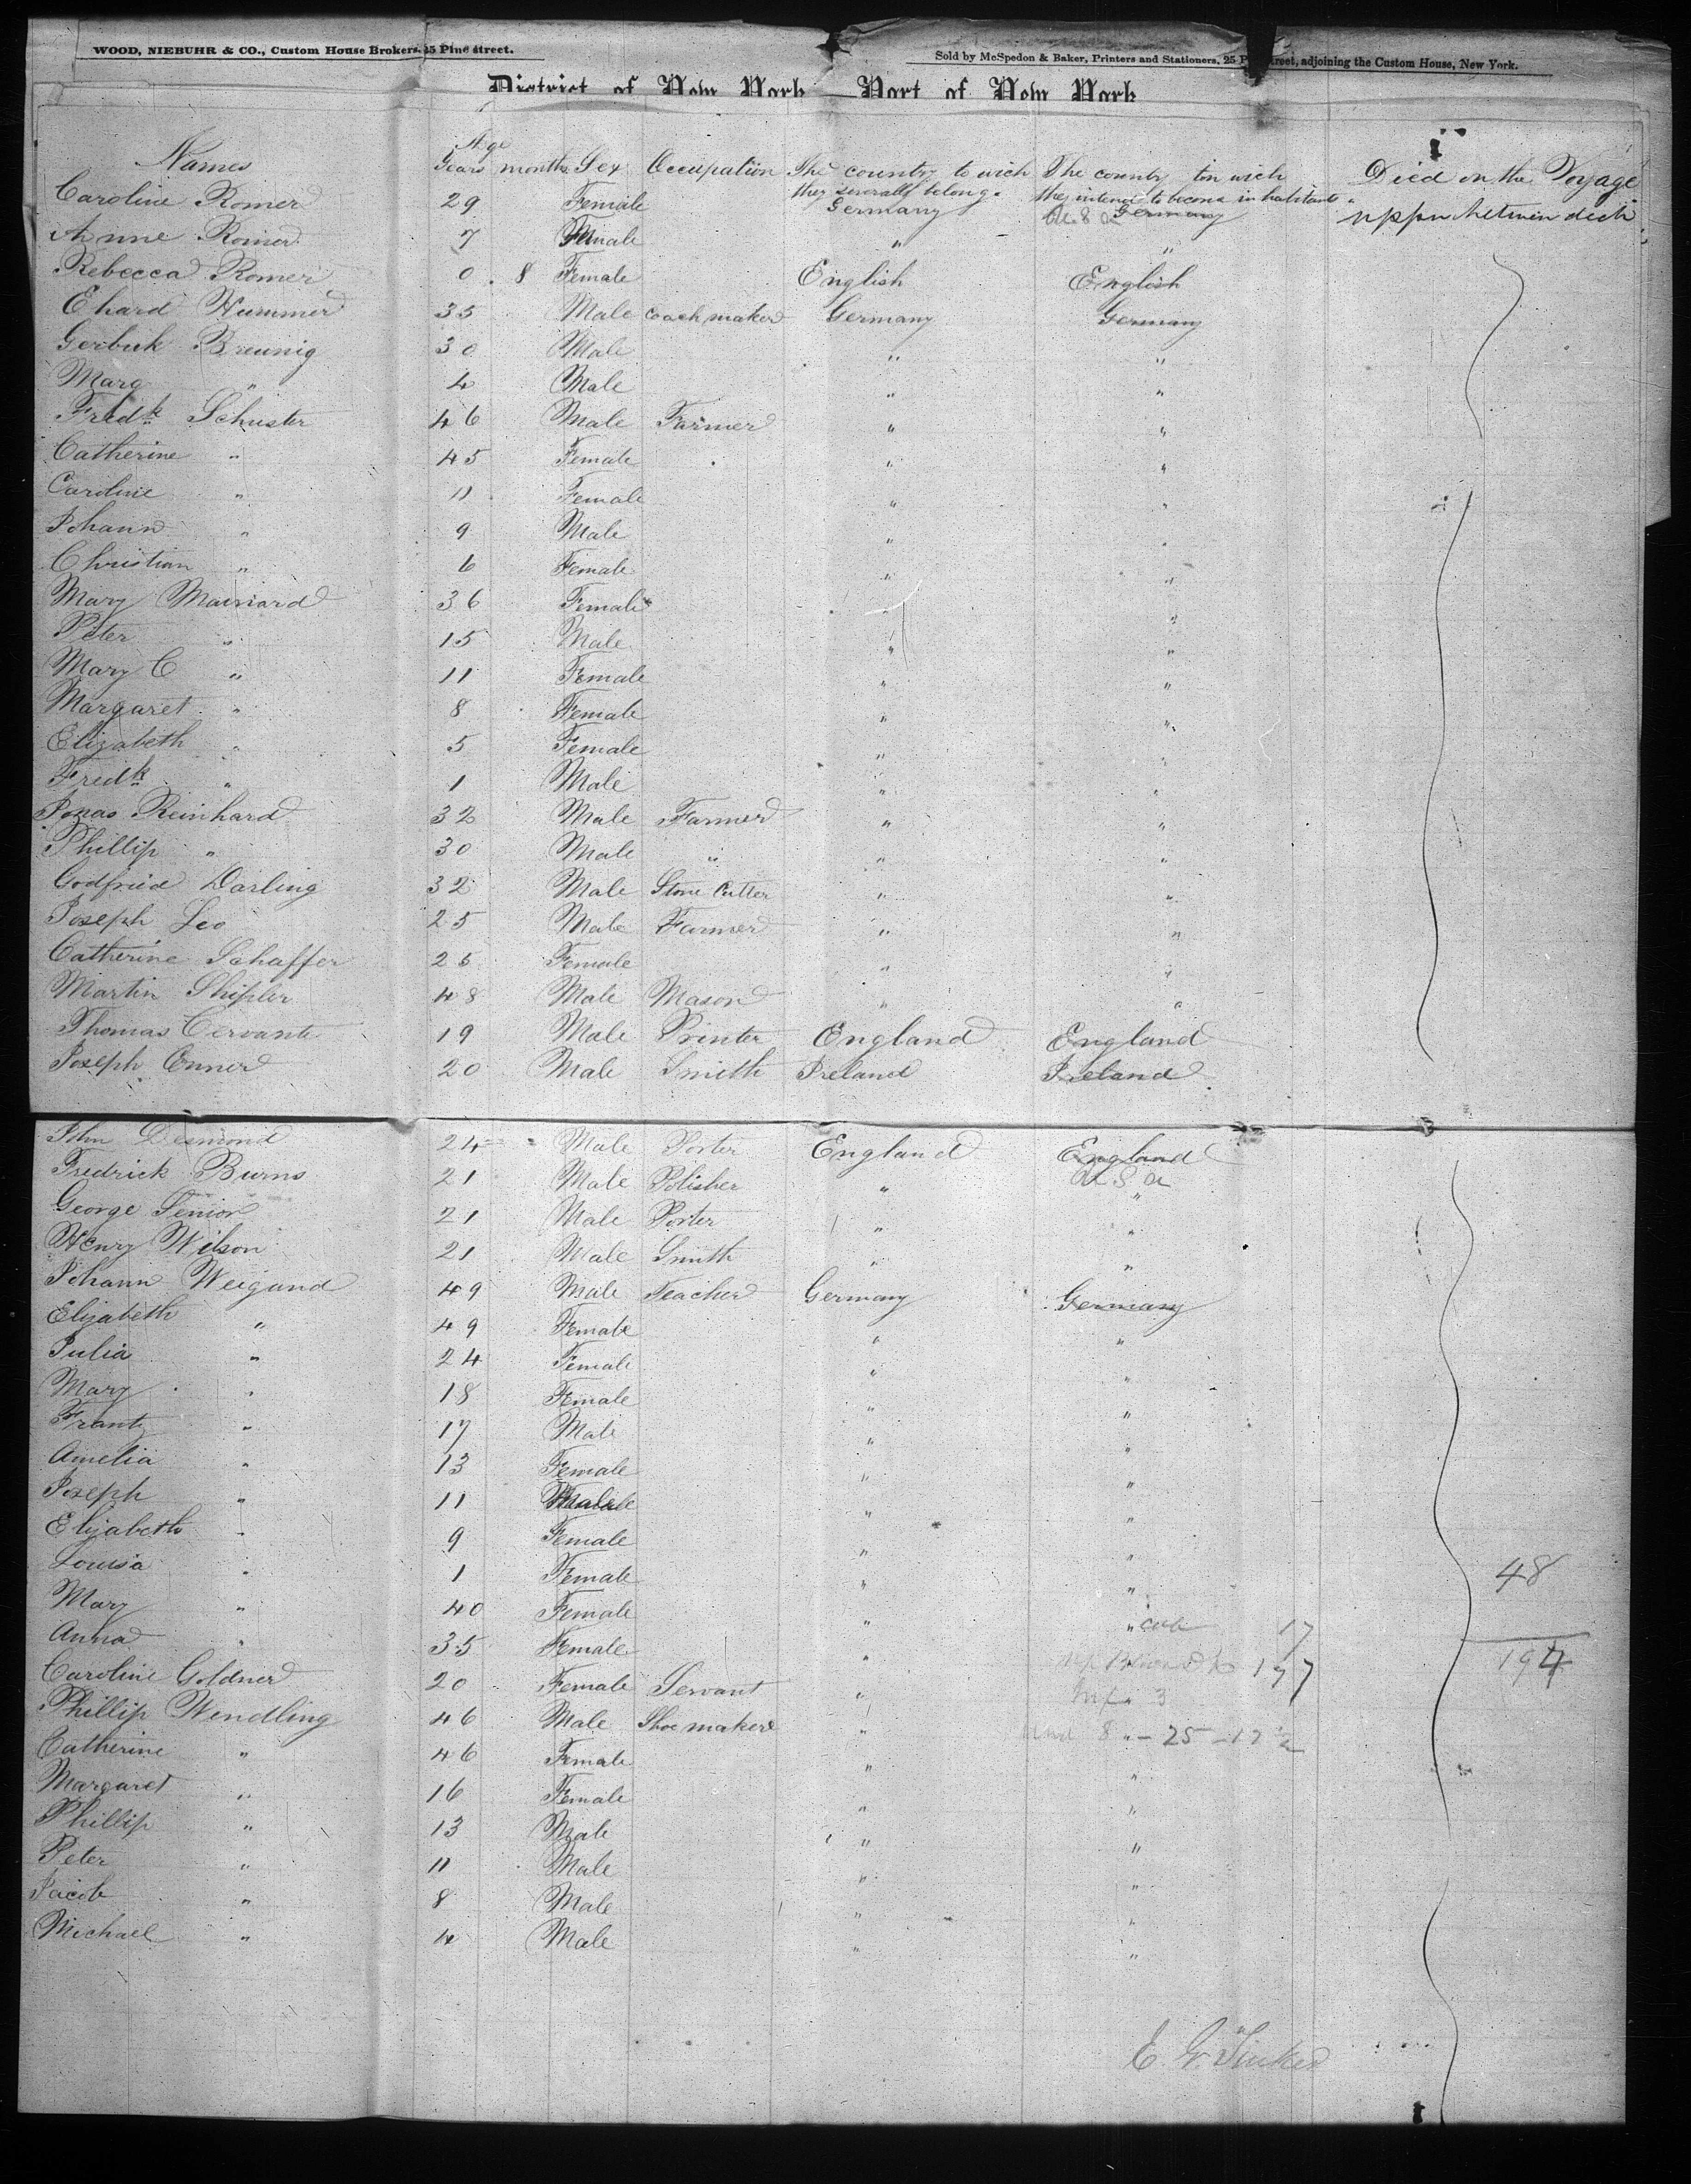 WOOD, NIEBUHR & CO., Custom House Brokers, 25 Pine street.
Sold by McSpedon & Baker, Printers and Stationers, 25 Pine street, adjoining the Custom House, New York.
District of New York Port of New York
Names Age Years months Sex Occupation The country to wich they severally belong. The country tin wich they intend to become inhabitants Died on the Voyage
Caroline Romer 29 Female Germany U S a Germany uppn betwen deck
Anne Romer 7 Female " "
Rebecca Romer 0 . 8 Female English English
Ehard Hummer 35 Male Coach maker Germany Germany
Breunig 30 Male " "
Marg " 4 Male " "
Fredk Schuster 46 Male Farmer " "
Catherine " 45 Female " "
Caroline " 11 Female " "
Johann " 9 Male " "
Christian " 6 Female " "
Mary Mainard 36 Female " "
Peter " 15 Male " "
Mary C " 11 Female " "
Margaret " 8 Female " "
Elizabeth " 5 Female " "
Fredk " 1 Male " "
Jonas Reinhard 32 Male Farmer " "
Phillip " 30 Male " " "
Godfried Darling 32 Male Stone Cutter " "
Joseph Leo 25 Male Farmer " "
Catherine Schaffer 25 Female " "
Martin Shipler 48 Male Mason " "
Thomas Cervante 19 Male Printer England England
Joseph Conner 20 Male Smith Ireland Ireland
John Desmond 24 Male Porter England England
Fredrick Burns 21 Male Polisher " U S a "
George Senior 21 Male Porter " "
Henry Wilson 21 Male Smith " "
Johann Weigand 49 Male Teacher Germany Germany
Elizabeth " 49 Female " "
Julia " 24 Female " "
Mary " 18 Female " "
Frantz " 17 Male " "
Amelia " 13 Female " "
Joseph " 11 Male " "
Elizabeth " 9 Female " "
Louisa " 1 Female " " 48
Mary " 40 Female " " cab 17
Anna " 35 Female " 177 194
Caroline Goldner 20 Female Servant " Inf. 3
Phillip Wendling 46 Male Shoe maker " Und 8 " - 25 - 17 ½
Catherine " 46 Female " "
Margaret " 16 Female " "
Phillip " 13 Male " "
Peter " 11 Male " "
Jacob " 8 Male " "
Michael " 4 Male " "
E. G. Tinker